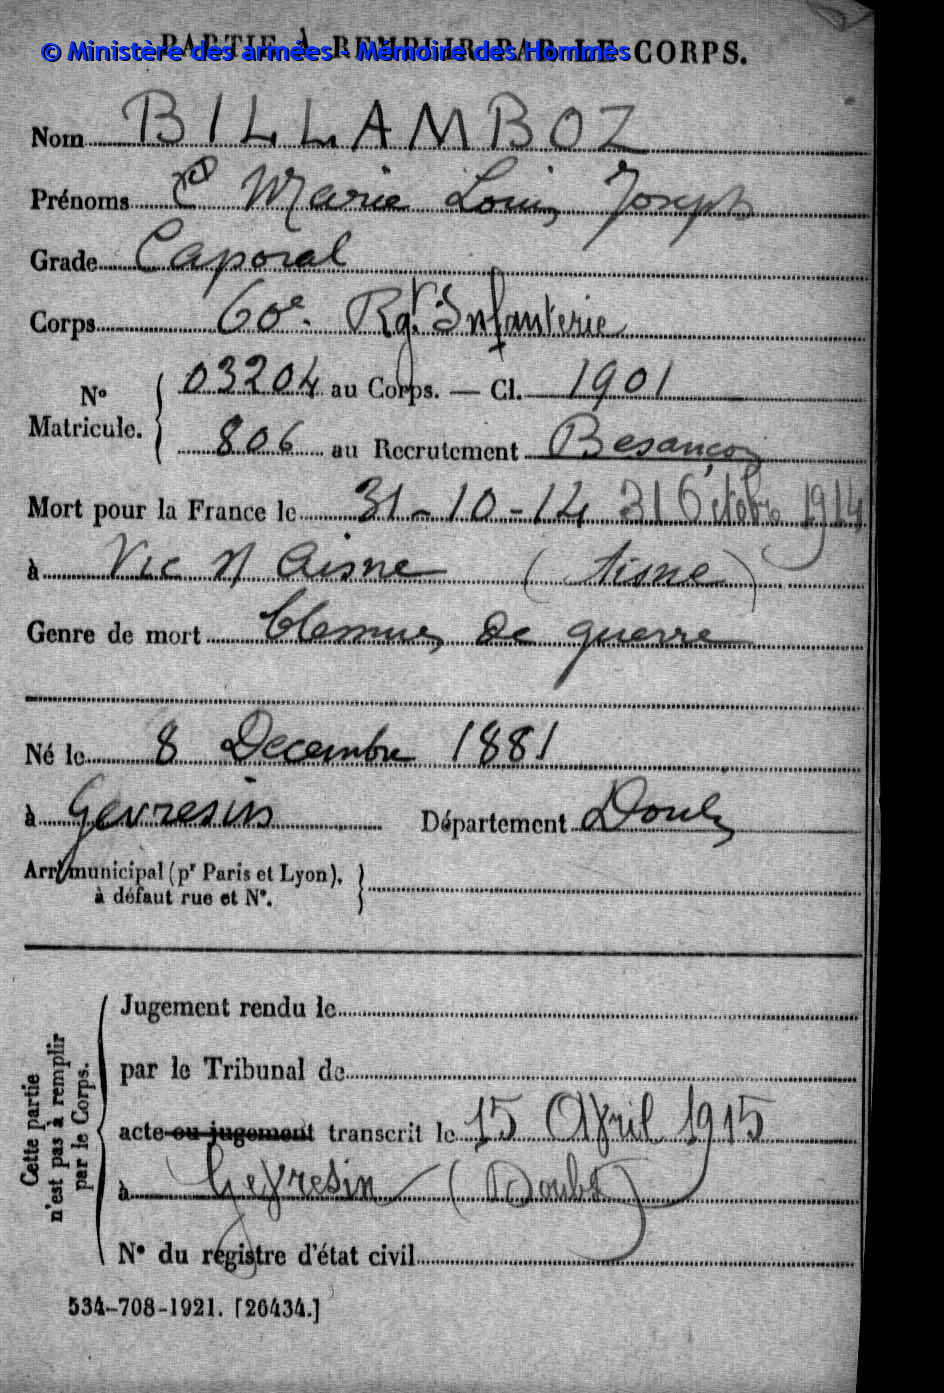 PARTIE À REMPLIR PAR LE CORPS.
© Ministère des armées - Mémoire des Hommes
Nom BILLAMBOZ
Prénoms Marie Louis Joseph
Grade Caporal
Corps 60e Rgt Infanterie
No Matricule. 03204 au Corps. — Cl. 1901
806 au Recrutement Besançon
Mort pour la France le 31-10-14 31 Octobre 1914
à Vic s/ Aisne (Aisne)
Genre de mort blessures de guerre
Né le 8 Decembre 1881
à Gevresin Département Doubs
Arrt municipal (pr Paris et Lyon),
à défaut rue et No.
Cette partie n'est pas à remplir par le Corps.
Jugement rendu le
par le Tribunal de
acte ou jugement transcrit le 15 Avril 1915
à Gevresin (Doubs)
No du registre d'état civil
534-708-1921. [26434.]